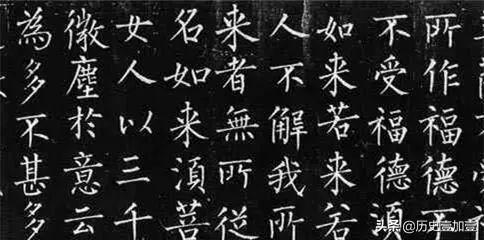 所作福德不
不受福德須
如来若来若
人不解我所
来者無所従
名如来湏菩
女人以三千
微塵於意云
為多不甚多
头条 @历史壹加壹